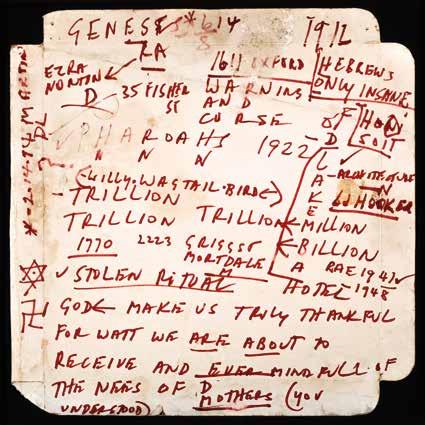 GENESES *614
1912
EZRA
NORTIN
ZA
D
35 FISHER
SE
1611 OXFORD
WARNING
AND
CURSE
HEBREWS
ONLY INSANE
D
OF
HONI
SOIT
PHAROAHS
N N N
1922
D
LAKE
ARCHITECTURE
N
6J HOOKER
(WILLY. WAGTAIL. BIRD)
TRILLION
TRILLION TRILLION
MILLION
BILLION
1770 2223 GRIGGS
MORTDALE
M
A RAE 1947
HOTEL 1948
✓ STOLEN RITUAL
GOD MAKE US TRILY THANKFUL
FOR WATT WE ARE ABOUT TO
RECEIVE AND EVER MINDFULL OF
THE NEES OF D MOTHERS (YOU
UNDERSTOOD)
*=2.14.74 MARTIN
PL